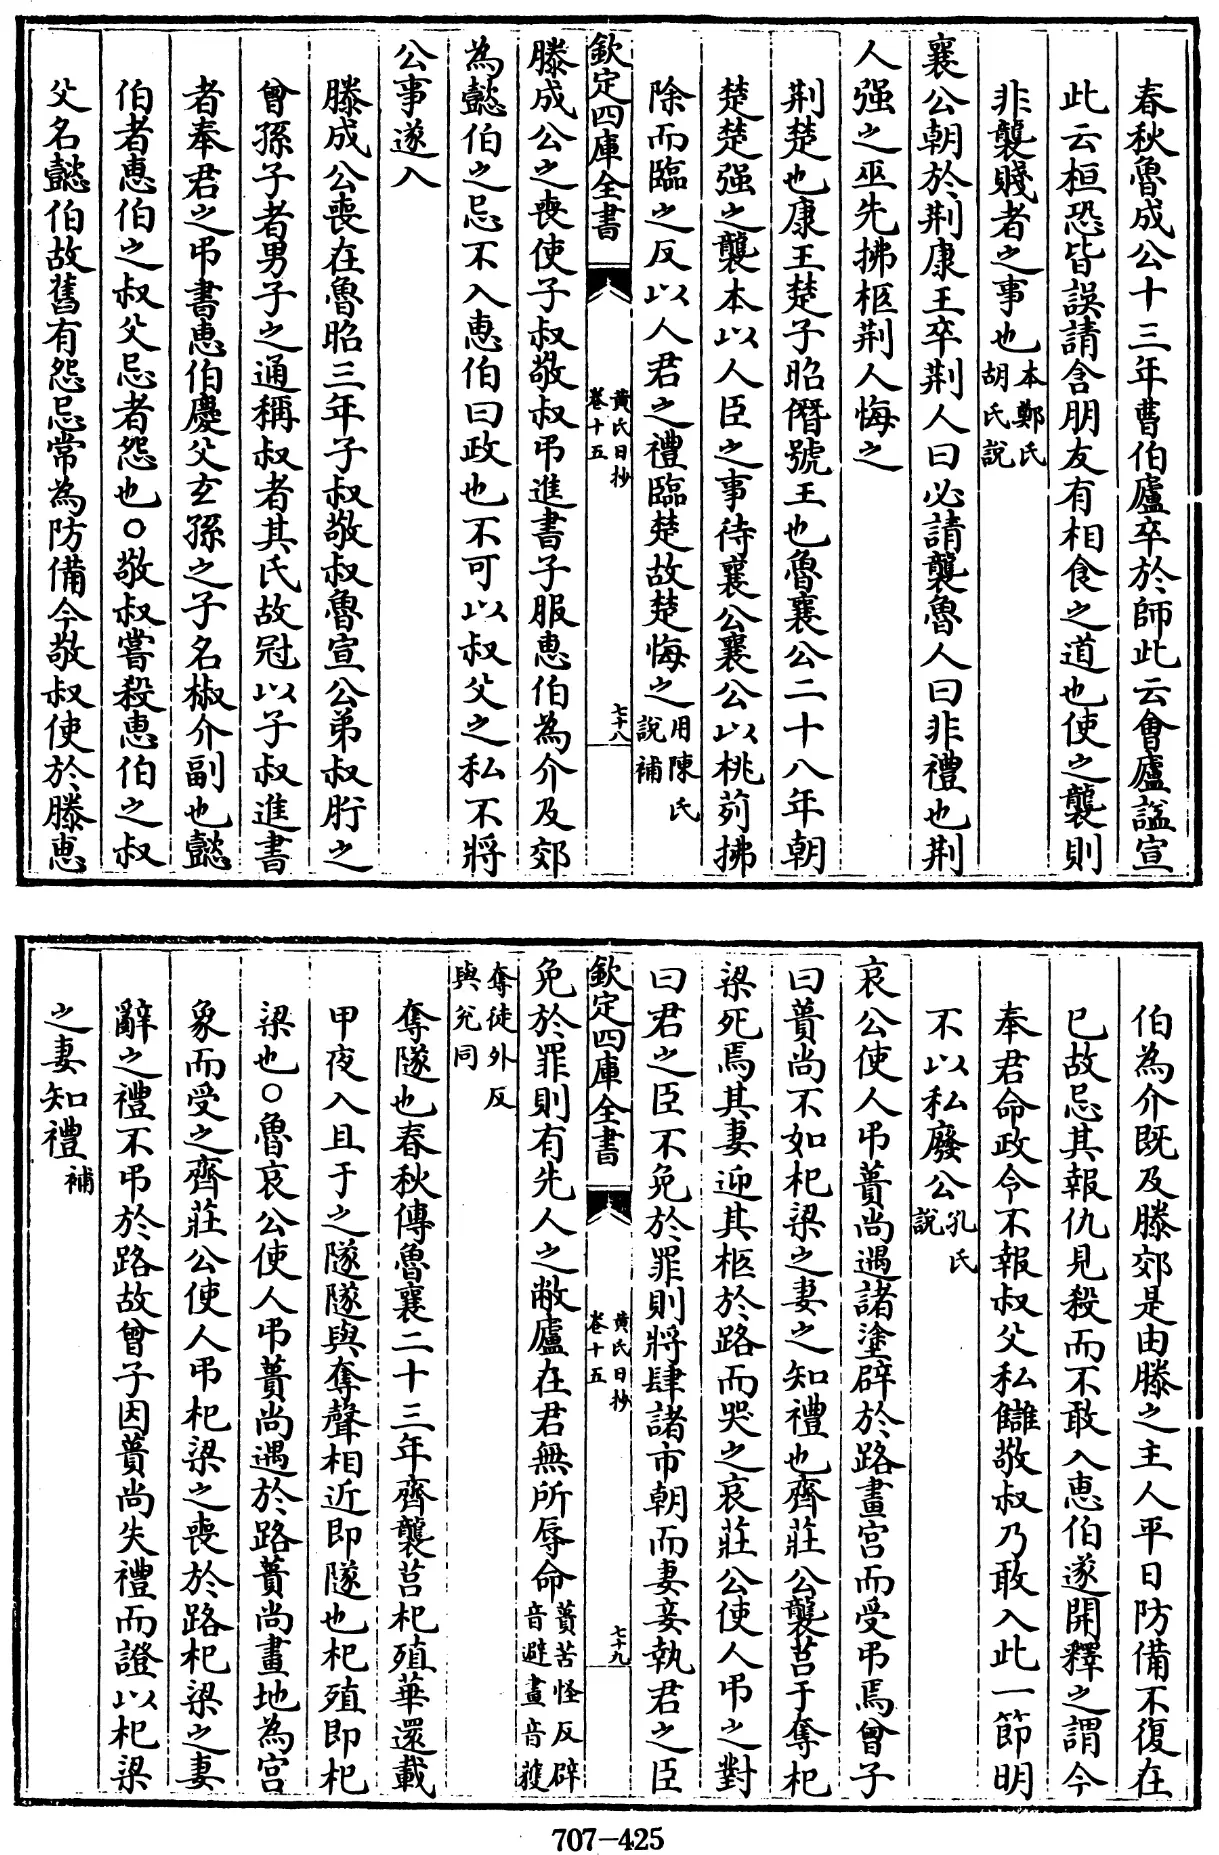 春秋魯成公十三年曹伯廬卒於師此云會廬諡宣
此云桓恐皆誤請含朋友有相食之道也使之襲則
非襲賤者之事也本鄭氏胡氏說
襄公朝於荆康王卒荆人曰必請襲魯人曰非禮也荆
人强之巫先拂柩荆人悔之
荆楚也康王楚子昭僭號王也魯襄公二十八年朝
楚楚强之襲本以人臣之事待襄公襄公以桃茢拂
除而臨之反以人君之禮臨楚故楚悔之用陳氏說補
欽定四庫全書
黄氏日抄
卷十五
七十八
滕成公之喪使子叔敬叔弔進書子服惠伯為介及郊
為懿伯之忌不入惠伯曰政也不可以叔父之私不將
公事遂入
滕成公喪在魯昭三年子叔敬叔魯宣公弟叔肸之
曾孫子者男子之通稱叔者其氏故冠以子叔進書
者奉君之弔書惠伯慶父玄孫之子名椒介副也懿
伯者惠伯之叔父忌者怨也○敬叔嘗殺惠伯之叔
父名懿伯故舊有怨忌常為防備今敬叔使於滕惠
伯為介既及滕郊是由滕之主人平日防備不復在
已故忌其報仇見殺而不敢入惠伯遂開釋之謂今
奉君命政令不報叔父私讎敬叔乃敢入此一節明
不以私廢公孔氏說
哀公使人弔蕢尚遇諸塗辟於路畫宮而受弔焉曾子
曰蕢尚不如杞梁之妻之知禮也齊莊公襲莒于奪杞
梁死焉其妻迎其柩於路而哭之哀莊公使人弔之對
曰君之臣不免於罪則將肆諸市朝而妻妾執君之臣
欽定四庫全書
黄氏日抄
卷十五
七十九
免於罪則有先人之敝廬在君無所辱命蕢苦怪反辟音避畫音獲
奪徒外反與兊同
奪隧也春秋傳魯襄二十三年齊襲莒杞殖華還載
甲夜入且于之隧隧與奪聲相近即隧也杞殖即杞
梁也○魯哀公使人弔蕢尚遇於路蕢尚畫地為宮
象而受之齊莊公使人弔杞梁之喪於路杞梁之妻
辭之禮不弔於路故曾子因蕢尚失禮而證以杞梁
之妻知禮補
707—425